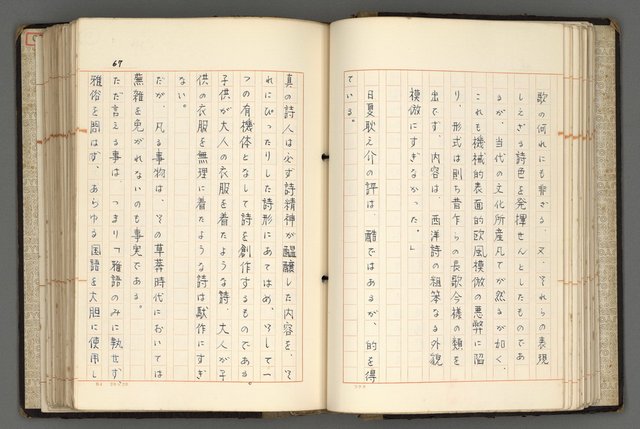 歌の何れにも非ざる、又、それらの表現
しえざる詩色を発揮せんとしたものであ
るが、当代の文化所産凡てが然るが如く、
これも機械的表面的欧風模倣の悪弊に陥
り、形式は則ち昔作らの長歌今様の類を
出です、内容は、西洋詩の粗笨なる外貌
模倣にすぎなかった。」
日夏耿之介の評は、酷ではあるが、的を得
ている。
67
真の詩人は必ず詩精神が醞醸した内容を、そ
れにぴったりした詩形にあてはめ、そして一
つの有機体となして詩を創作するものである。
子供が大人の衣服を着たような詩、大人が子
供の衣服を無理に着たような詩は駄作にすぎ
ない。
だが、凡る事物は、その草莽時代においては
蕪雑を免がれないのも事実である。
ただ言える事は、つまり「雅語のみに執せず、
雅俗を問はず、あらゆる国語を大胆に使用し